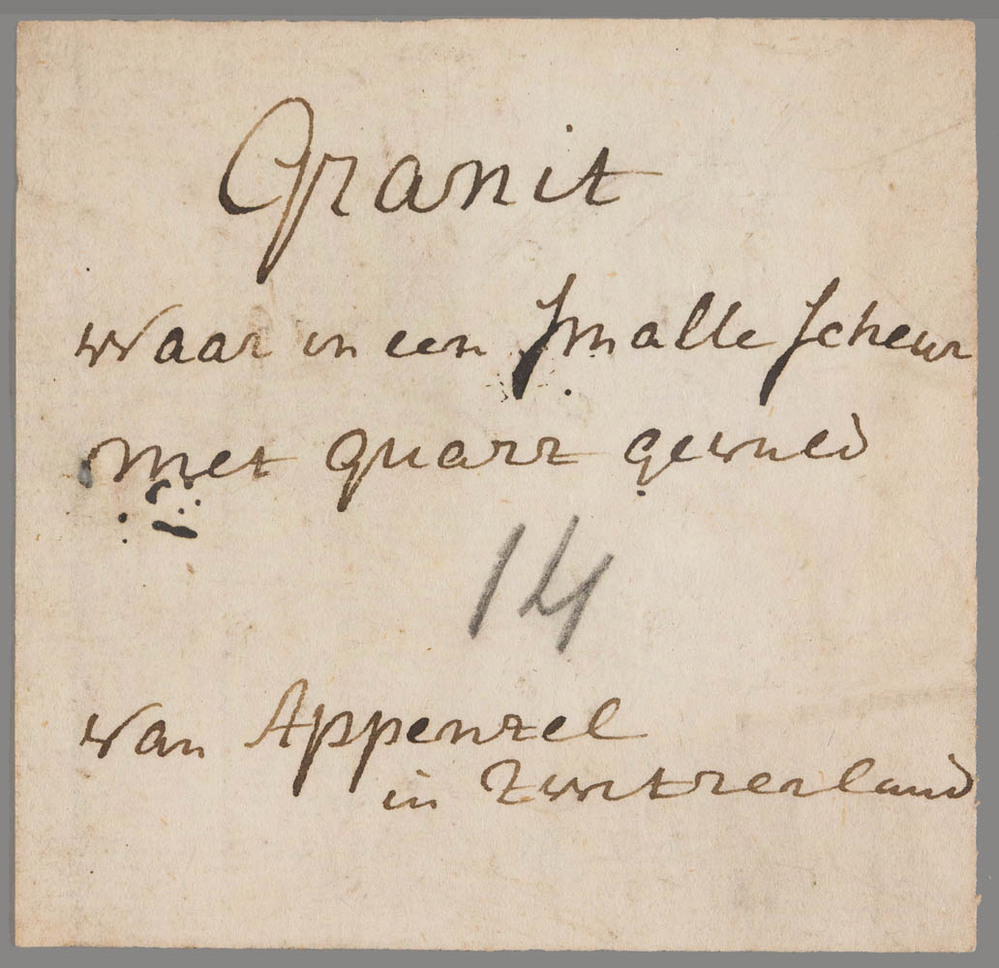 Granit
waar in een smalle scheur
met quarz gevued
14
van Appenzel
in Zwitzerland